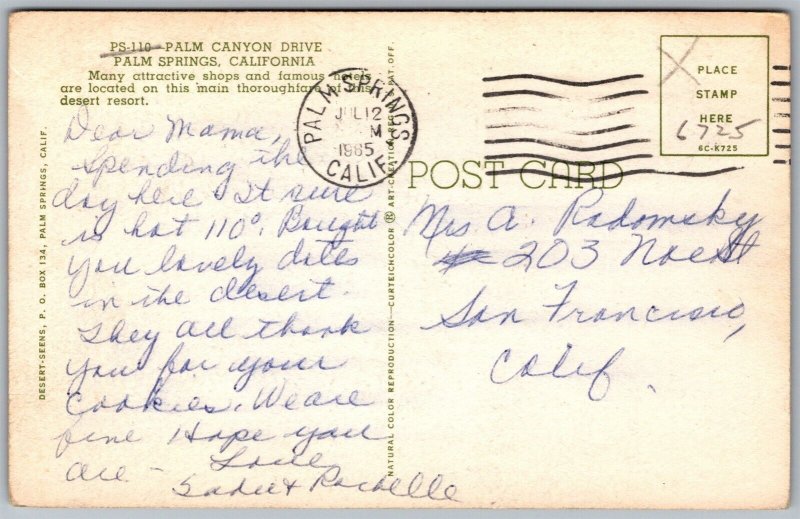 PS-110—PALM CANYON DRIVE
PALM SPRINGS, CALIFORNIA
Many attractive shops and famous hotels
are located on this main thoroughfare of this
desert resort.
PALM SPRINGS
JUL 12
M
1965
CALIF.
PLACE
STAMP
HERE
6725
6C-K725
POST CARD
Dear Mama,
Spending the
day here. It sure
is hot 110°. Bought
you lovely dates
in the desert.
They all thank
you for your
cookies. We are
fine Hope you
are — Love,
Sadie & Rochelle
Mrs A. Radomsky
203 Noe St
San Francisco,
Calif.
DESERT-SEENS, P. O. BOX 134, PALM SPRINGS, CALIF.
NATURAL COLOR REPRODUCTION—CURTEICHCOLOR ® ART-CREATION REG. U.S. PAT. OFF.